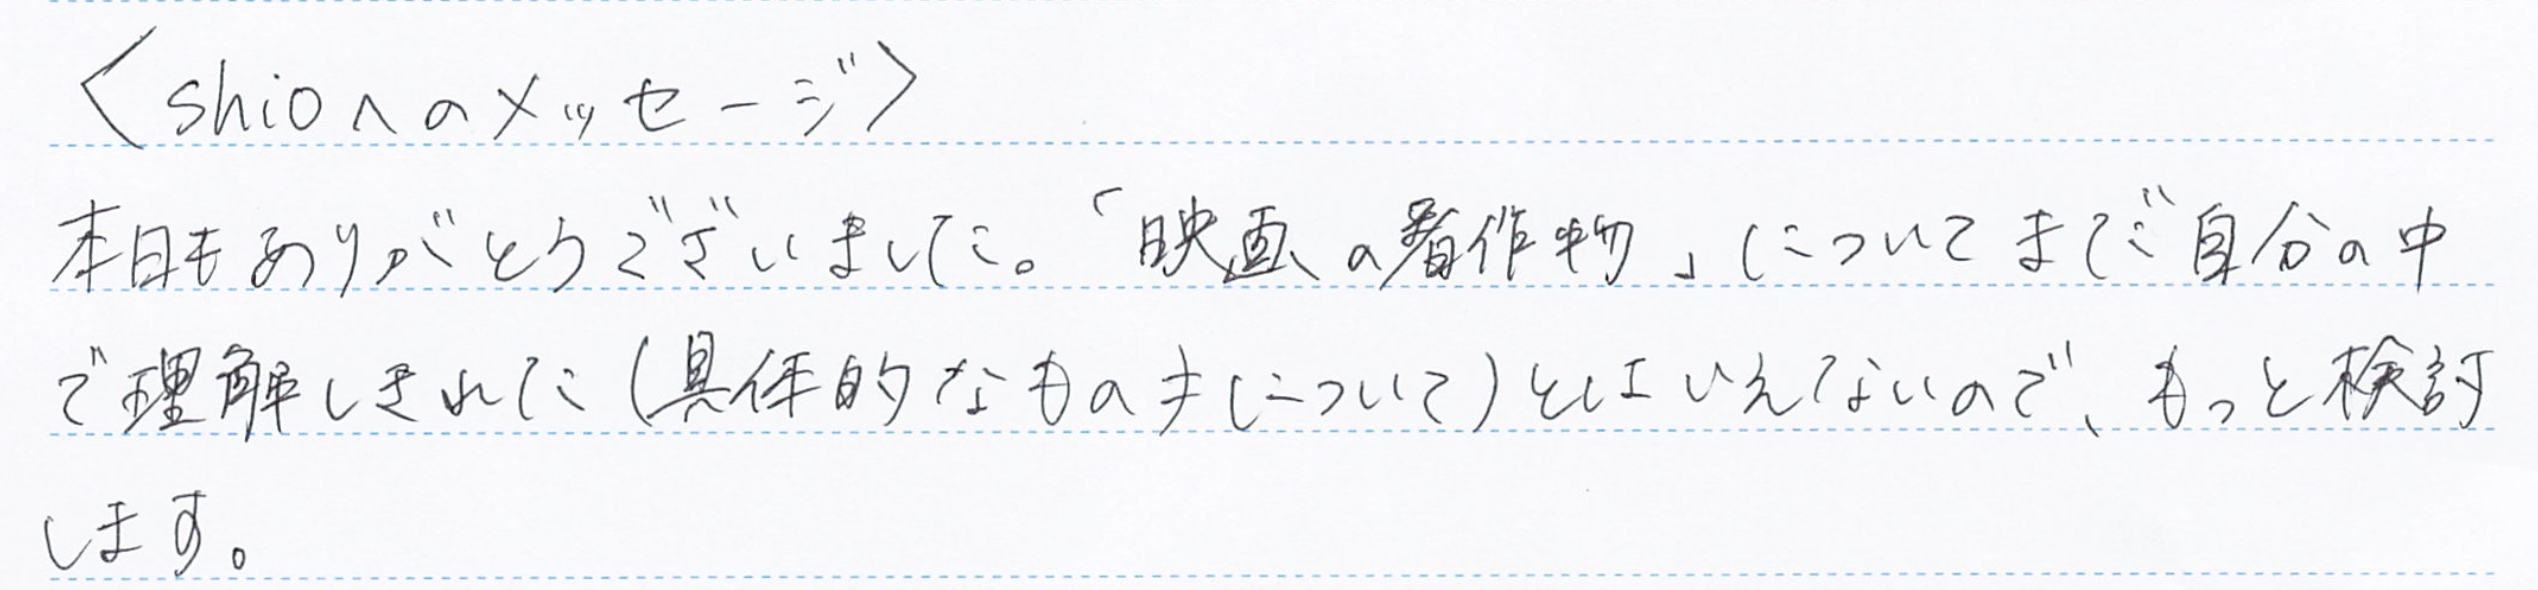 〈shioへのメッセージ〉
本日もありがとうございました。「映画の着作物」についてまだ自分の中
で理解しきれた(具体的なもの等について)とはいえないので、もっと検討
します。